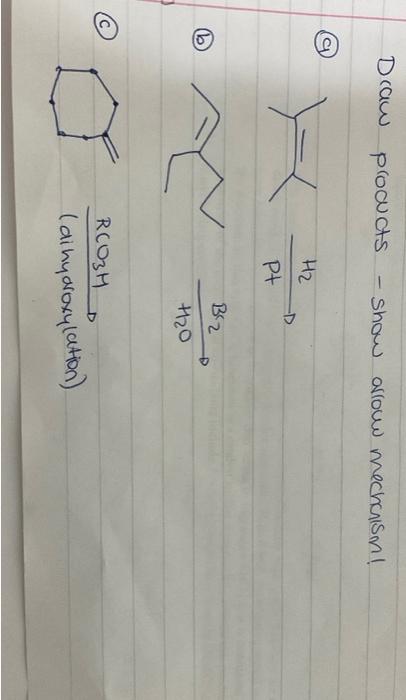 Draw products - show arrow mechanism!
a
H2
Pt
b
Br2
H2O
c
RCO3H
(dihydroxylation)